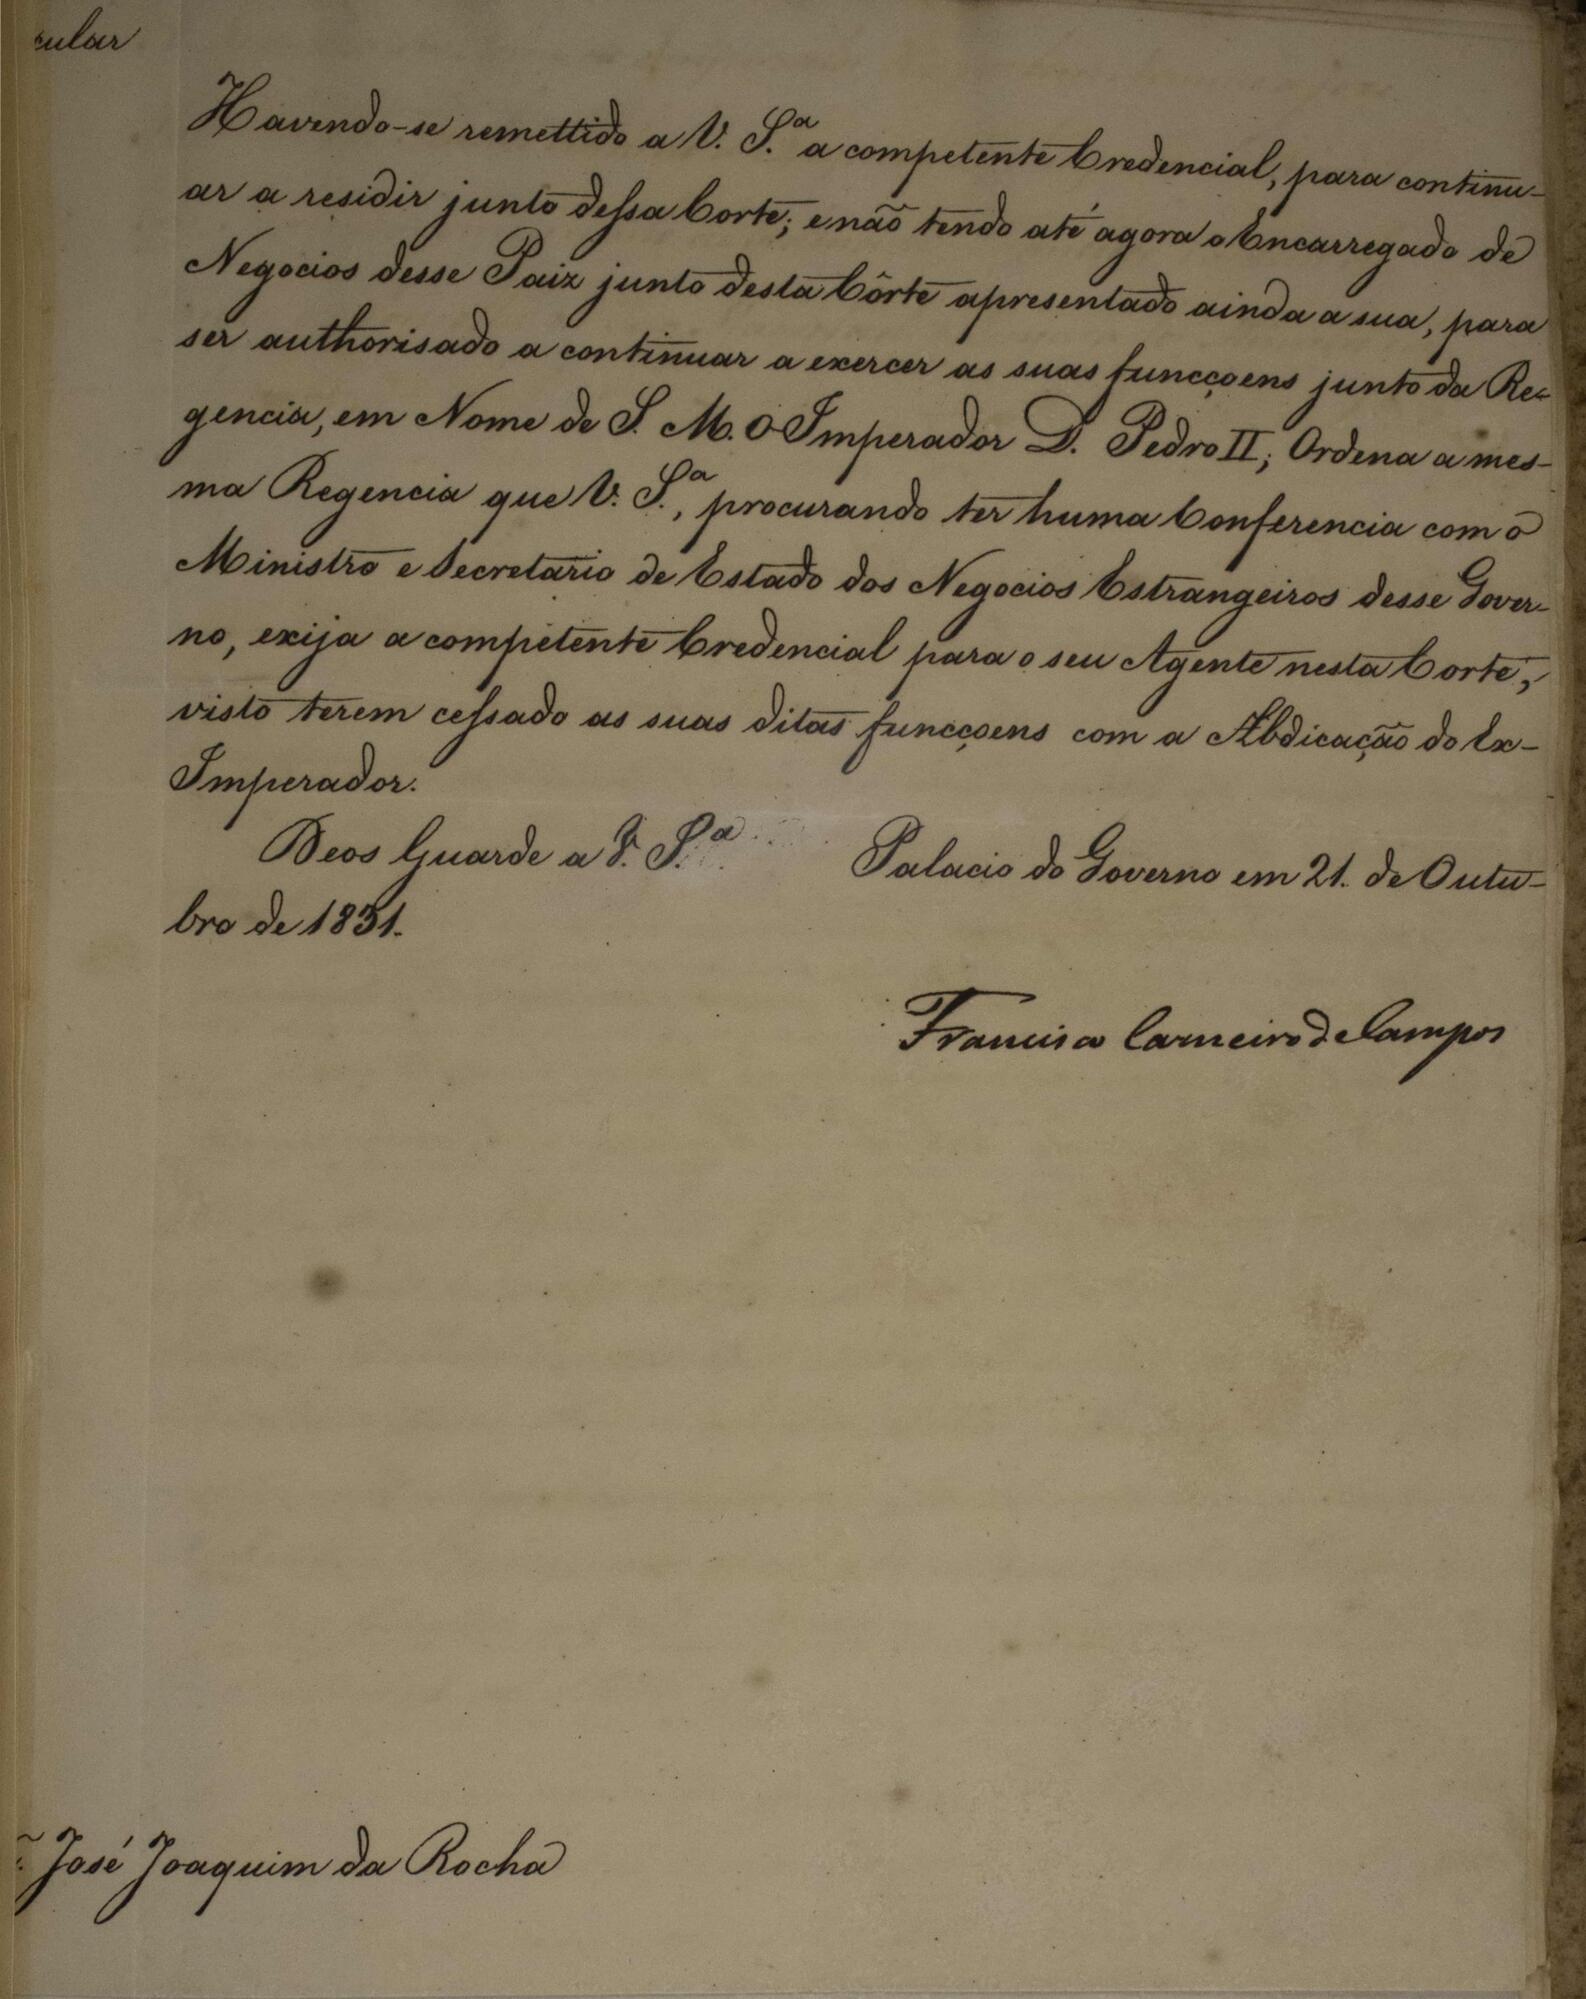 cular
Havendo-se remettido a V. S.ª a competente Credencial, para continu-
ar a residir junto dessa Corte; e não tendo até agora o Encarregado de
Negocios desse Paiz junto desta Côrte apresentado ainda a sua, para
ser authorisado a continuar a exercer as suas funcçoens junto da Re-
gencia, em Nome de S. M. O Imperador D. Pedro II; Ordena a mes-
ma Regencia que V. S.ª, procurando ter huma Conferencia com o
Ministro e Secretario de Estado dos Negocios Estrangeiros desse Gover-
no, exija a competente Credencial para o seu Agente nesta Corte,
visto terem cessado as suas ditas funcçoens com a Abdicação do Ex-
Imperador.
Deos Guarde a V. S.ª Palacio do Governo em 21. de Outu-
bro de 1831.
Francisco Carneiro de Campos
José Joaquim da Rocha